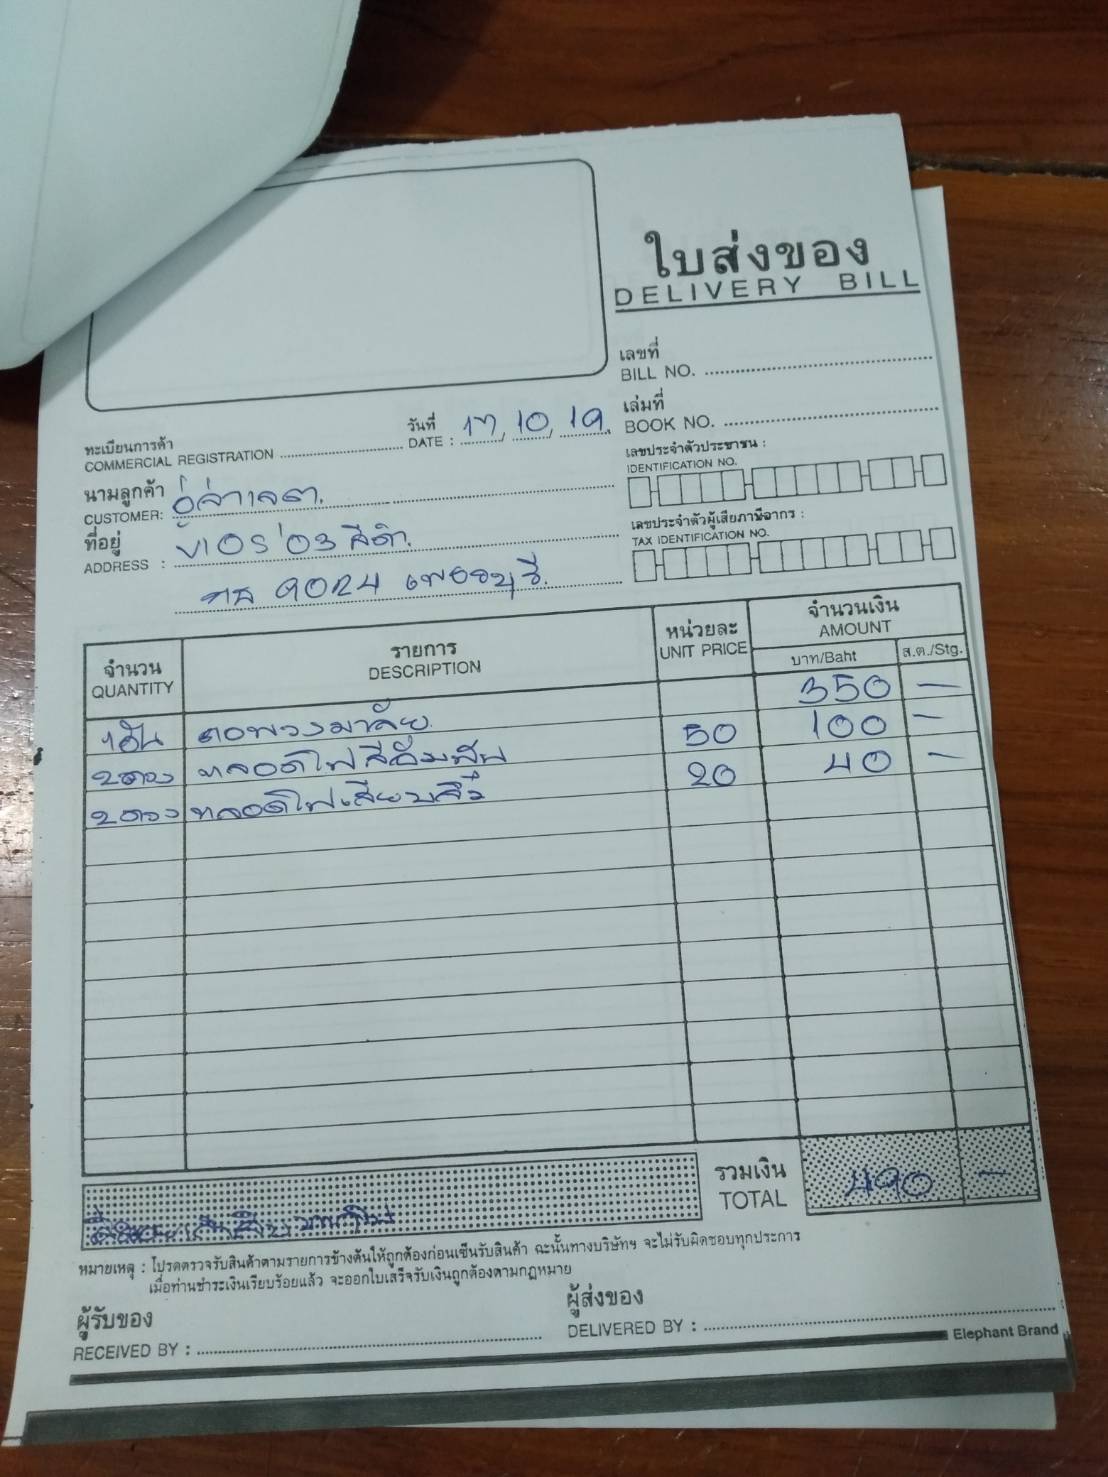 ใบส่งของ
DELIVERY BILL
เลขที่
BILL NO.
วันที่
DATE : 17, 10, 19.
เล่มที่
BOOK NO.
ทะเบียนการค้า
COMMERCIAL REGISTRATION
เลขประจำตัวประชาชน :
IDENTIFICATION NO.
นามลูกค้า
CUSTOMER:
ที่อยู่
ADDRESS : VIOS '03 สีดำ
เลขประจำตัวผู้เสียภาษีอากร :
TAX IDENTIFICATION NO.
9024 เพชรบุรี
จำนวน
QUANTITY
รายการ
DESCRIPTION
หน่วยละ
UNIT PRICE
จำนวนเงิน
AMOUNT
บาท/Baht
ส.ต./Stg.
1 อัน คอพวงมาลัย 350 –
2 ดวง หลอดไฟ 50 100 –
2 ดวง หลอดไฟเสียบ 20 40 –
รวมเงิน
TOTAL 490 –
หมายเหตุ : โปรดตรวจรับสินค้าตามรายการข้างต้นให้ถูกต้องก่อนเซ็นรับสินค้า ฉะนั้นทางบริษัทฯ จะไม่รับผิดชอบทุกประการ
เมื่อท่านชำระเงินเรียบร้อยแล้ว จะออกใบเสร็จรับเงินถูกต้องตามกฎหมาย
ผู้รับของ
RECEIVED BY :
ผู้ส่งของ
DELIVERED BY :
Elephant Brand